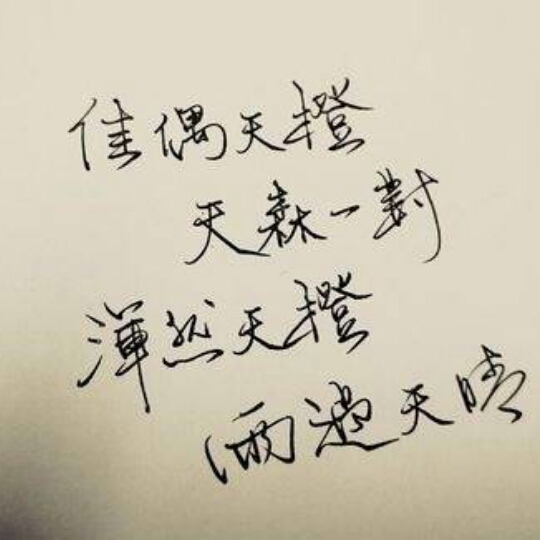 佳偶天橙
天森一對
渾然天橙
雨過天晴